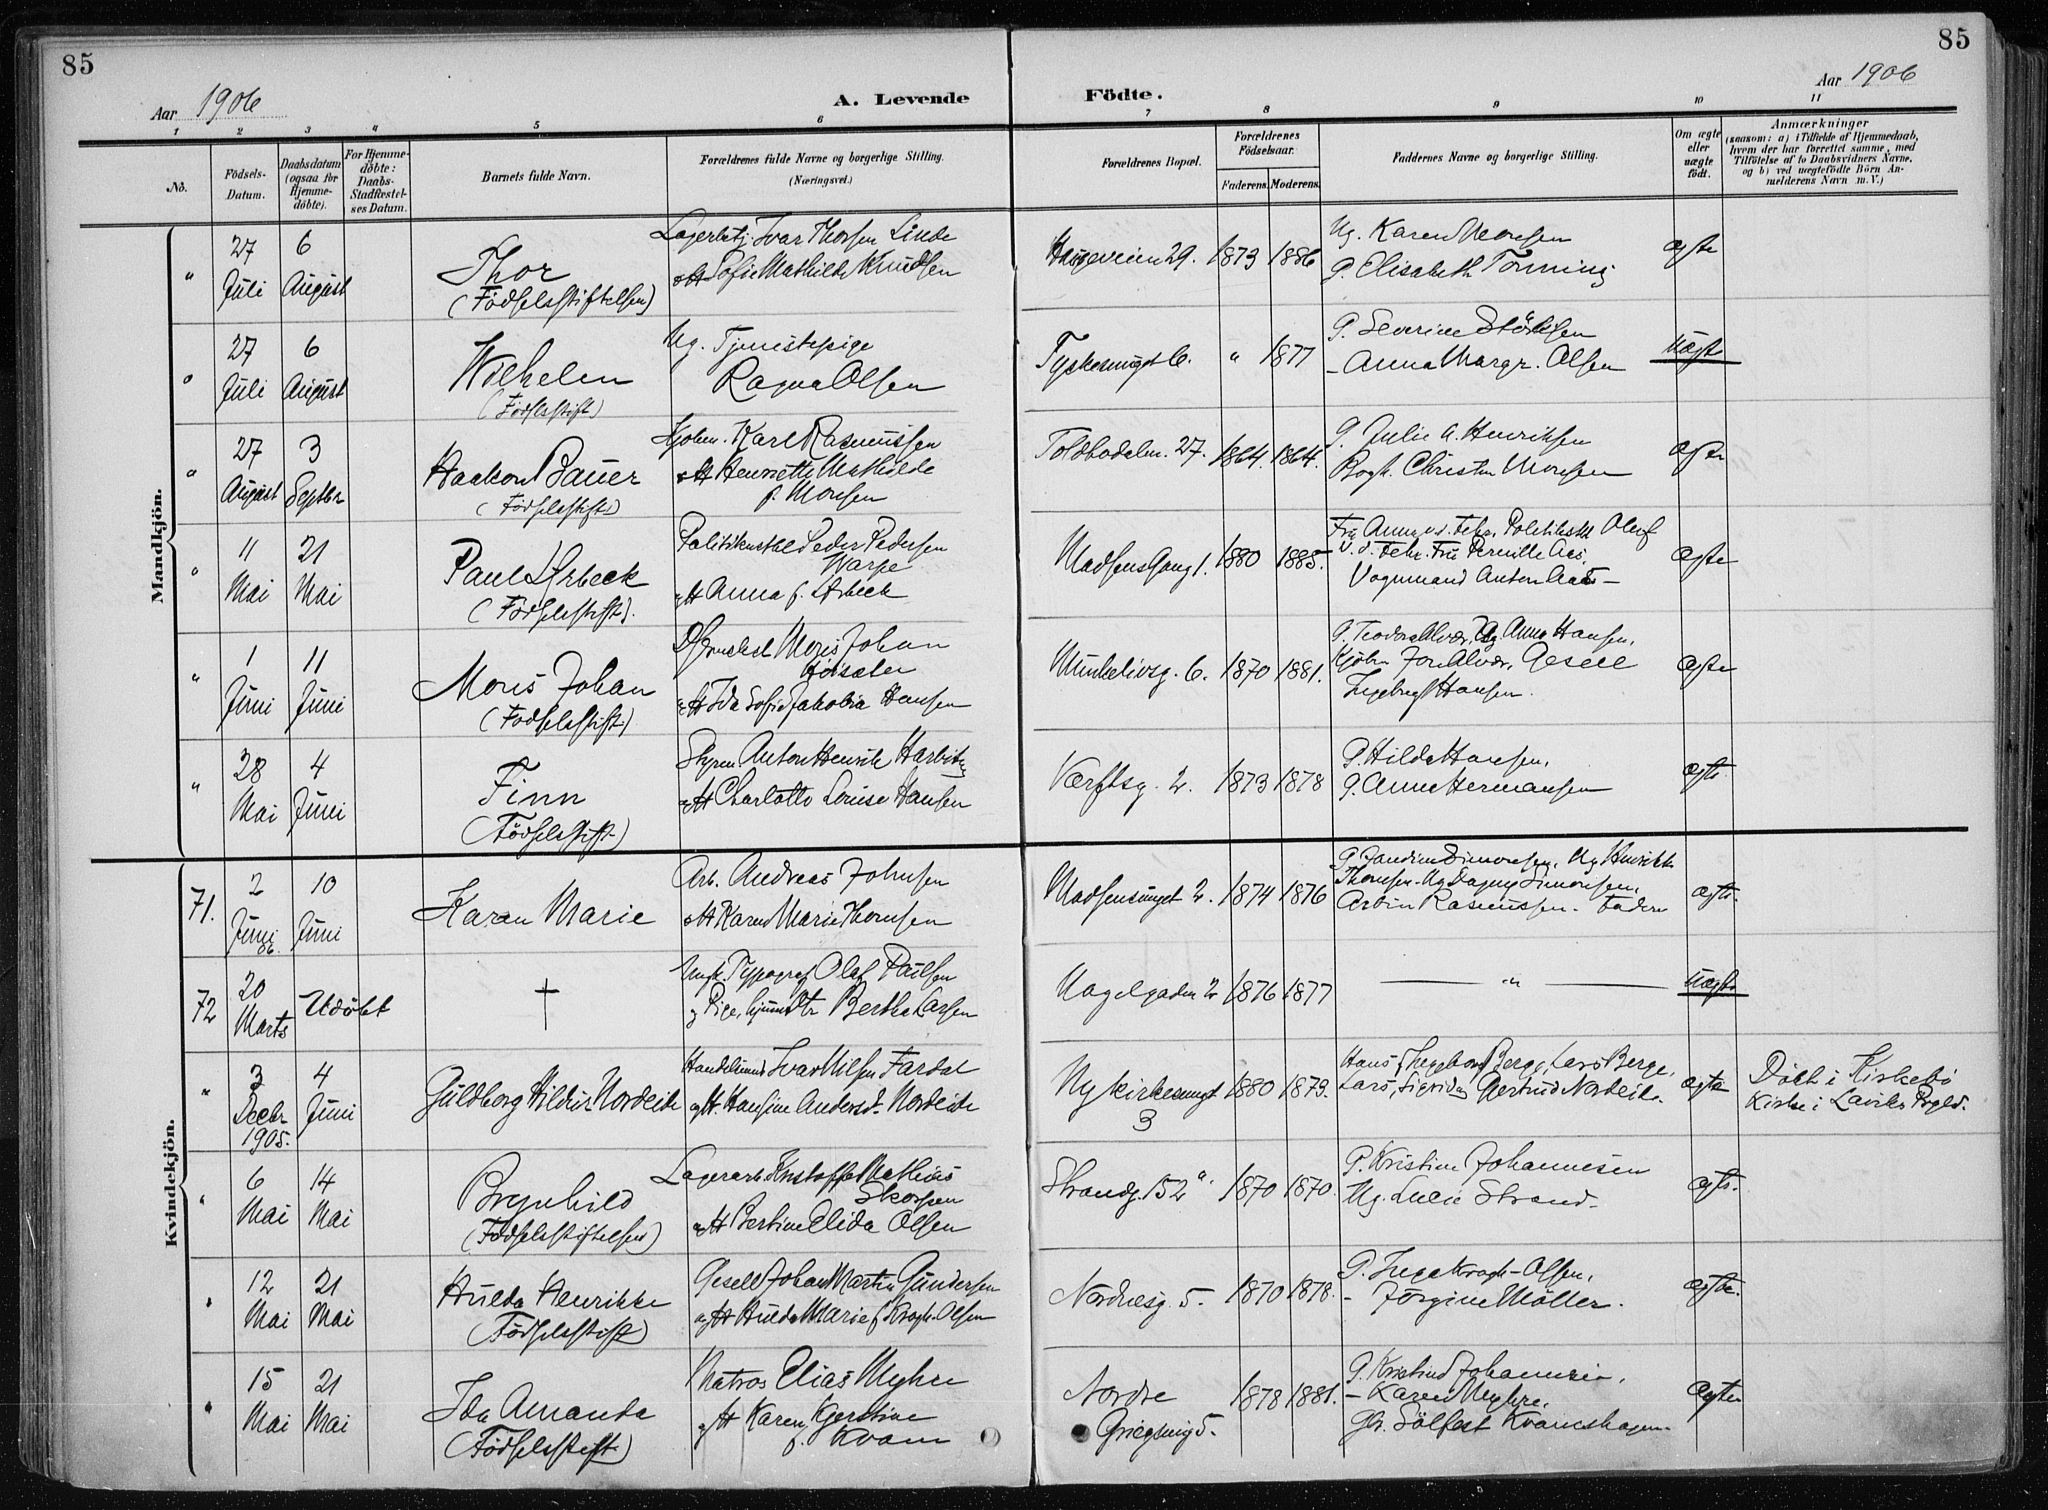 85
85
Aar 1906
A. Levende
Födte.
Aar 1906
1 2 3 4 5 6 7 8 9 10 11
No.
Födsels-
Datum.
Daabsdatum
(ogsaa for
Hjemme-
döbte).
For Hjemme-
döbte:
Daabs-
Stadfæstel-
ses Datum.
Barnets fulde Navn.
Forældrenes fulde Navne og borgerlige Stilling.
(Næringsvei.)
Forældrenes Bopæl.
Forældrenes
Födselsaar.
Faderens.
Moderens.
Faddernes Navne og borgerlige Stilling.
Om ægte
eller
uægte
födt.
Anmærkninger
(saasom: a) i Tilfælde af Hjemmedaab,
hvem der har forrettet samme, med
Tilföielse af to Daabsvidners Navne,
og b) ved uægtefödte Börn An-
melderens Navn m. V.)
Mandkjön.
" 27 Juli
6 August
Thor
(Fødselsstiftelsen)
Lagerbetj. Ivar Thorsen Linde
o H Sofie Mathilde Knudsen
Haugeveien 29. 1873 1886
Ug. Karen Monsen
P. Elisabeth Tonning
ægte
" 27 Juli
6 August
Wilhelm
(Fødselsstift)
Ug. Tjenestepige
Ragna Olsen
Tyskesmuget 6. " 1877
P. Severine
- Anna Margr. Olsen
uægte
" 27 August
3 Septbr
Haakon Bauer
(Fødselsstift)
Kjøbm. Karl Rasmussen
o H Henriette Mathilde
f. Monsen
Toldbodalm. 27. 1864. 1864.
P. Julie A. Henriksen
Bogh. Christen Monsen
ægte
" 11 Mai
21 Mai
Paul Arbeck
(Fødselsstift).
Politikonstbl Peder Pedersen
Warpe
o H Anna f. Arbeck
Madsens Gang 1. 1880 1885.
Fru Anna v. d. Fehr, Politikstbl Oluf
v. d. Fehr. Fru Pernille Aas
Vognmand Anton Aas
ægte
" 1 Juni
11 Juni
Moris Johan
(Fødselsstift)
Moris Johan
Høisæter
o H Ida Sofie Jakobia Hansen
Munkelivsg. 6. 1870 1881.
P. Teodora Alvær, Ug. Anna Hansen,
Kjøbm Jon Alvær, Gesell
Ingebrigt Hansen.
ægte
" 28 Mai
4 Juni
Finn
(Fødselsstift)
Styrm Anton Henrik Harbitz
o H Charlotte Louise Hansen
Værftsg. 2. 1873 1878
P. Hilda Hansen,
P. Anna Hermansen
ægte
Kvindekjön.
71. 2 Juni 06.
10 Juni
Karen Marie
Arb. Andreas Johnsen
o H Karen Marie Thomsen
Madsensmuget 2. 1874 1876
P. Jandine Simonsen, Ug Henrikke
Thomsen. Ug Dagny Simonsen,
Arbm Rasmussen. Faderen
ægte.
72 20 Marts
Udøbt
†
Ungk. Typograf Olaf Paulsen
og Pige, Bertha Larsen
Nagelgaden 2 1876 1877
— " —
uægte
" 3 Decbr 1905.
4 Juni
Guldborg Hildur Nordeide
Handelsmd Ivar Nilsen Fardal
og H Hansine Andersd. Nordeide
Nykirkesmuget
3 1880 1879.
Hans, Ingeborg Berge, Lars Berge,
Lars, Sigrid og Gertrud Nordeide.
ægte
Døbt i Kirkebø
Kirke i Laviks Prgld.
" 6 Mai
14 Mai
Brynhild
(Fødselsstiftelsen)
Lagerarb. Kristoffer Mathias
Skorpen
og H Bertine Elida Olsen
Strandg. 152 " 1870 1870.
P. Kristine Johannesen
Ug. Lucie Strand.
ægte.
" 12 Mai
21 Mai
Hulda Henrikke
(Fødselsstift)
Gesell Johan Martin Gundersen
og H Hulda Marie f. Kragh-Olsen
Nordnesg. 5. 1870 1878.
P. Inga Kragh-Olsen,
- Jørgine Møller.
ægte.
" 15 Mai
21 Mai
Ida Amanda
(Fødselsstift)
Matros Elias Myhre
og H Karen Kjerstine
f. Kvam
Nordre
Griegsmug 5. 1878 1881.
P. Kristine Johannesen,
- Karen Myhre,
Gbr. Sølfest Kvamshagen
ægte